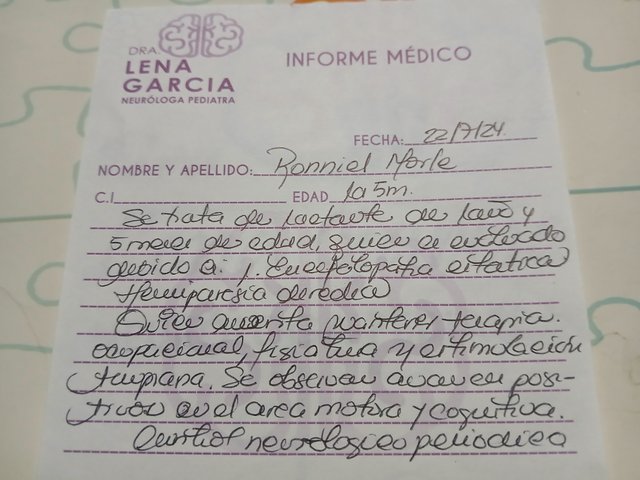 DRA.
LENA
GARCIA
NEURÓLOGA PEDIATRA
INFORME MÉDICO
FECHA: 22/7/24.
NOMBRE Y APELLIDO: Ronniel Morle
C.I. EDAD 1a 5m.
Se trata de lactante de 1año y
5 meses de edad, quien es evaluado
debido a: 1. Encefalopatia estatica
Hemiparesia derecha
Quien amerita mantener terapia
ocupacional, fisiatria y estimulación
temprana. Se observan avances posi-
tivos en el area motora y cognitiva.
Control neurologico periodico